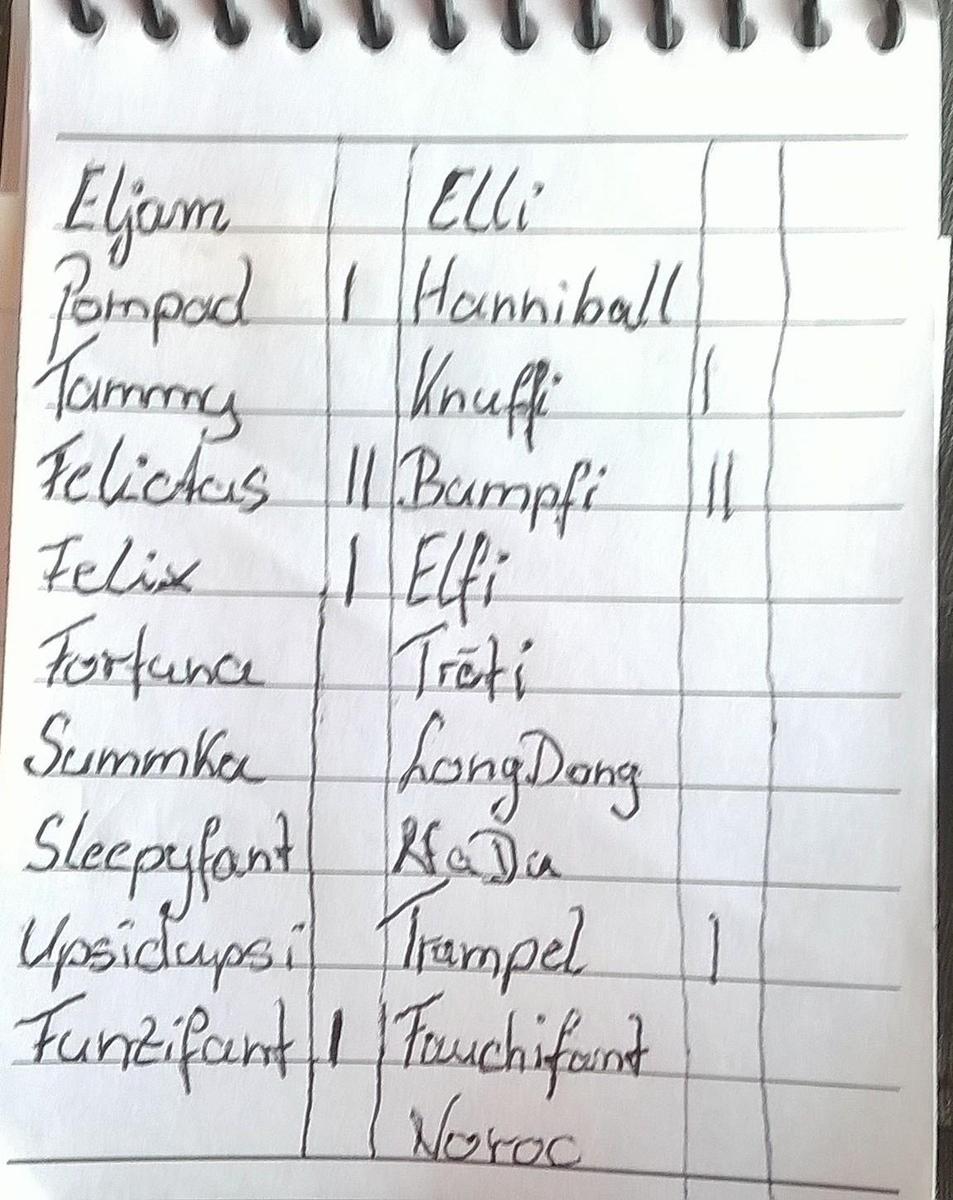 Eljam Elli
Pompad I Hanniball
Tammy Knuffi I
Felicitas II Bampfi II
Felix I Elfi
Fortuna Tröti
Summka LongDong
Sleepyfant
Upsidupsi Trampel I
Funzifant I Fauchifant
Noroc